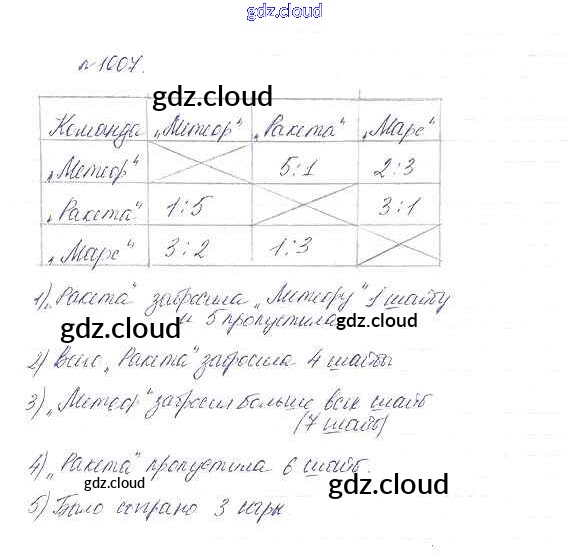 gdz.cloud
№1007.
gdz.cloud
Команда „Метеор“ „Ракета“ „Марс“
„Метеор“ 5:1 2:3
„Ракета“ 1:5 3:1
„Марс“ 3:2 1:3
1) „Ракета“ забросила „Метеору“ 1 шайбу
и 5 пропустила
gdz.cloud gdz.cloud
2) Всего „Ракета“ забросила 4 шайбы
3) „Метеор“ забросил больше всех шайб
(7 шайб)
4) „Ракета“ пропустила 6 шайб.
gdz.cloud gdz.cloud
5) Было сыграно 3 игры
gdz.cloud